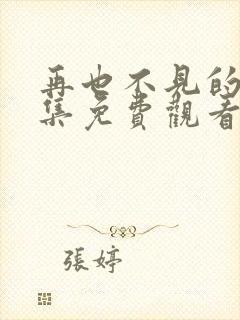 再也不見的
集免費觀看
張婷